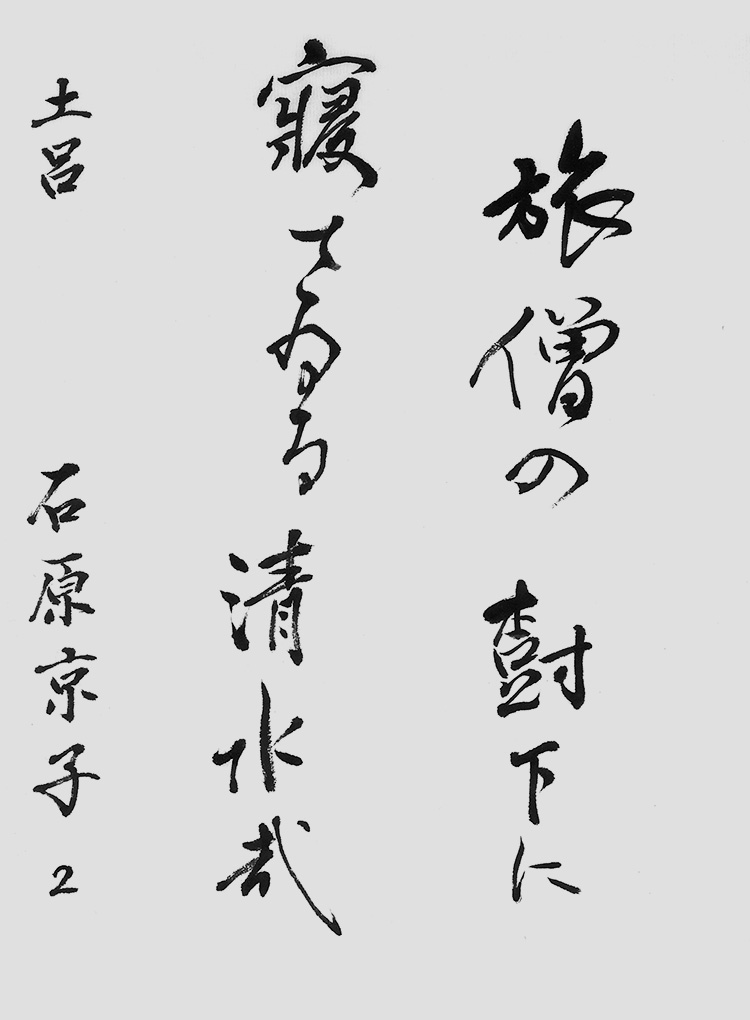 旅僧の樹下に
寝てゐる清水哉
土呂 石原京子 2